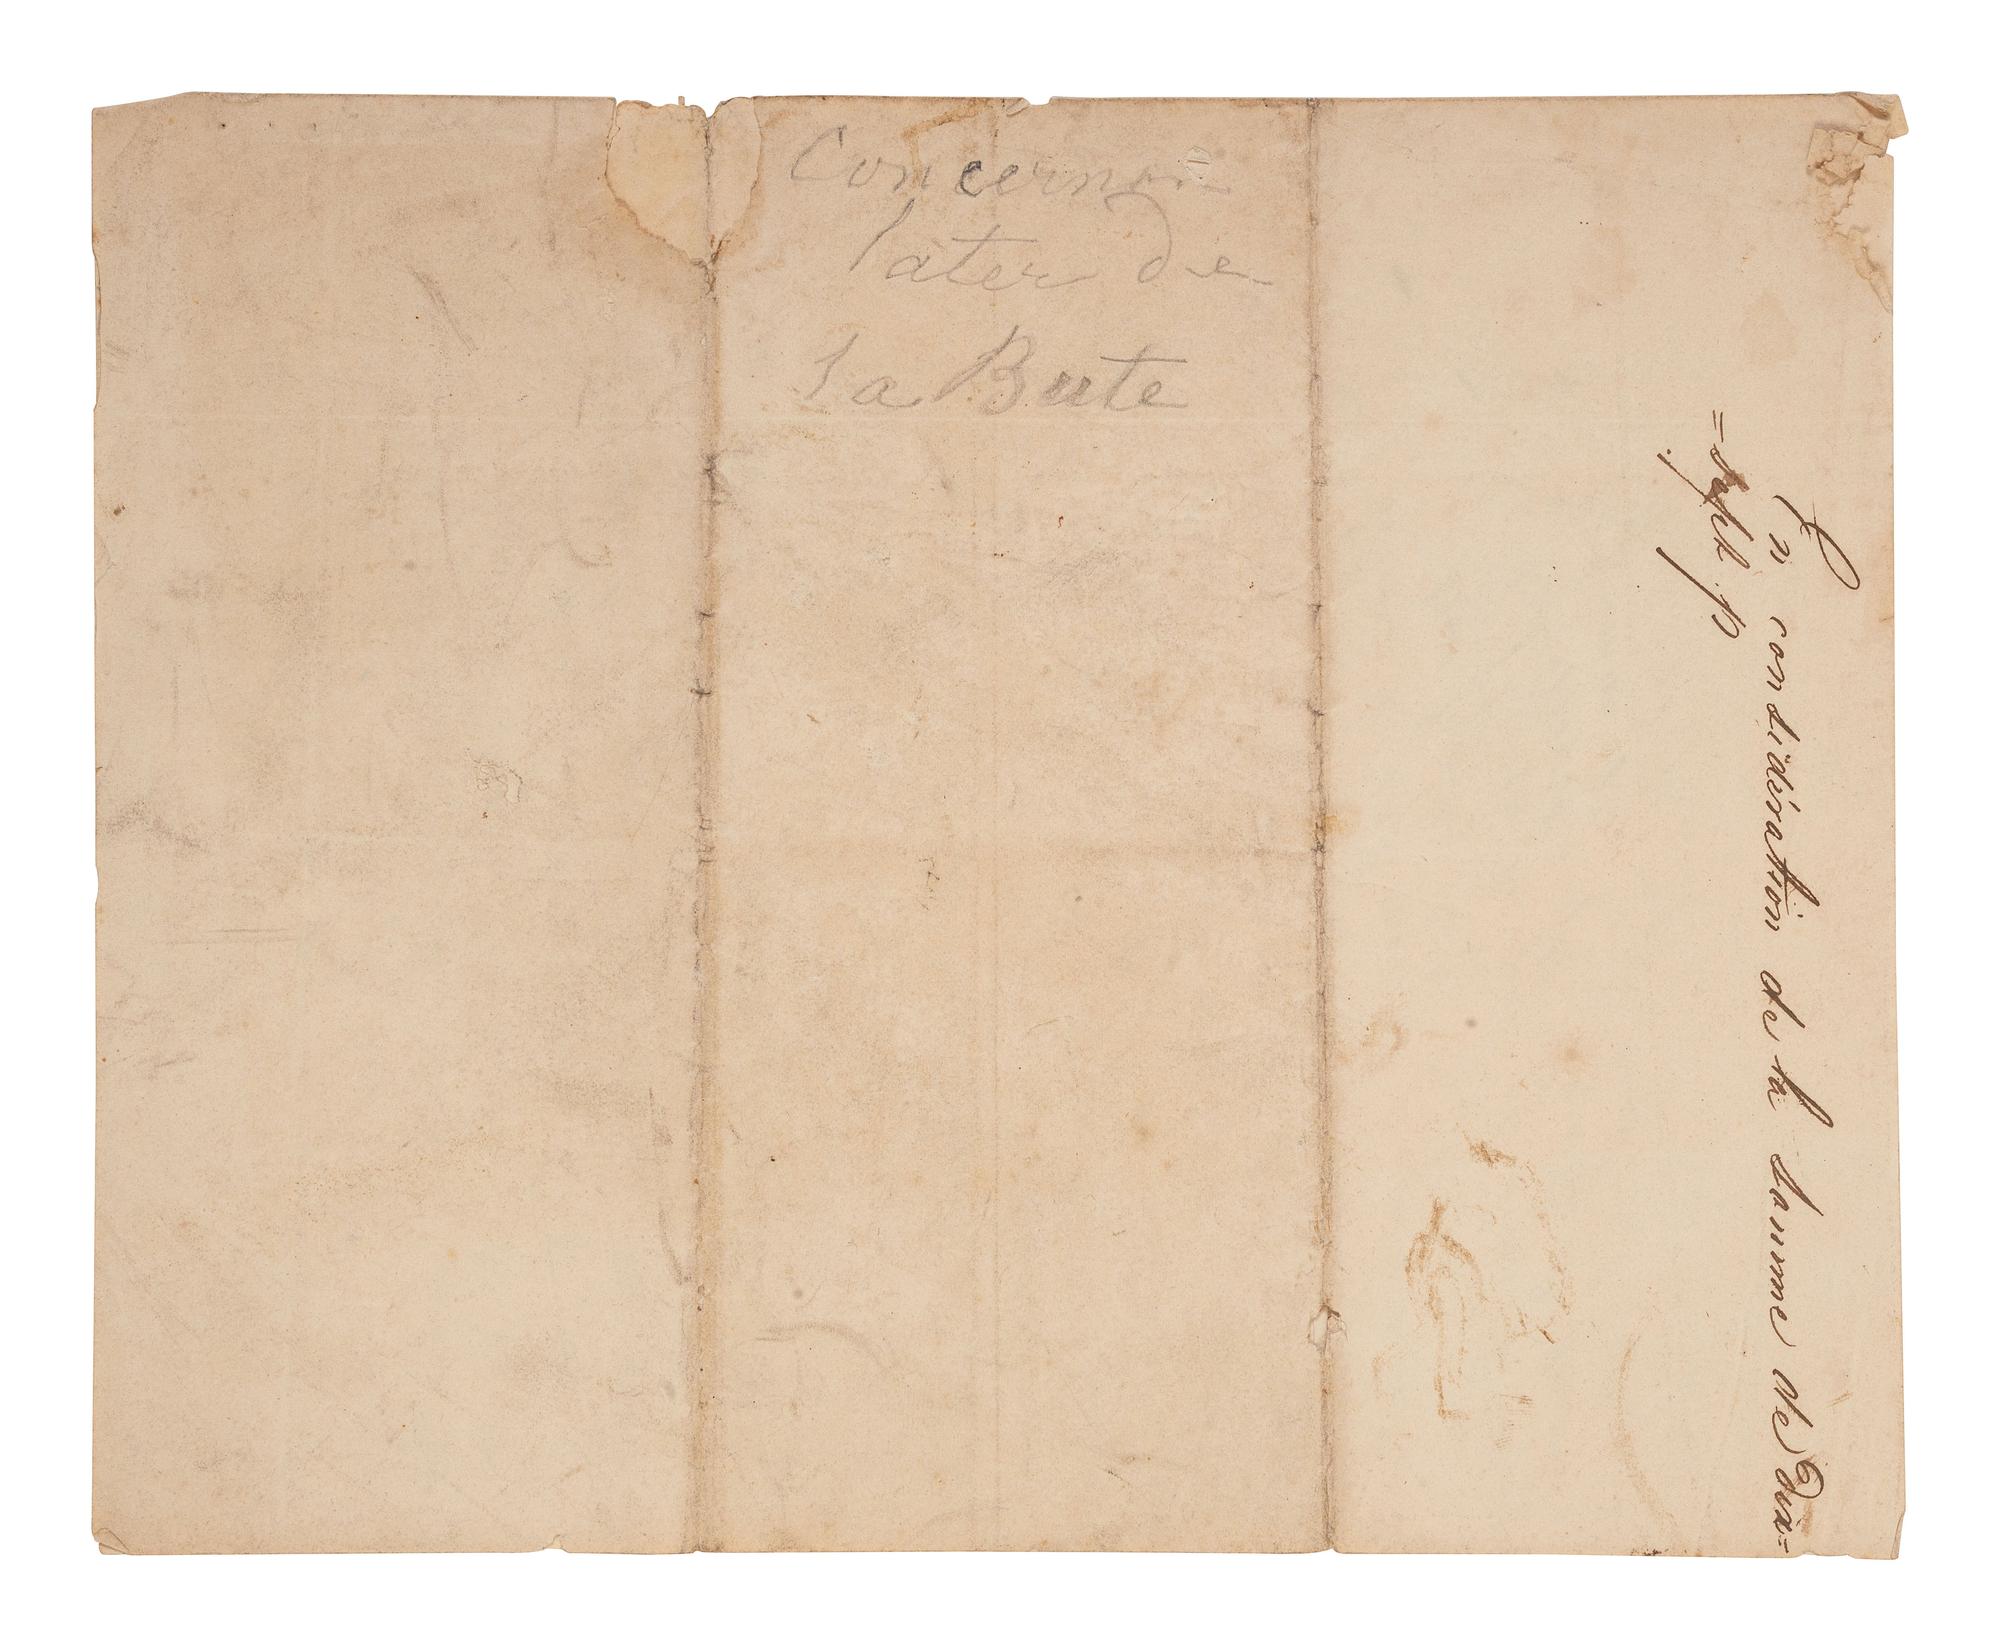 Concernan
later de
la Bute
En considération de la somme de Dix=
=sept p